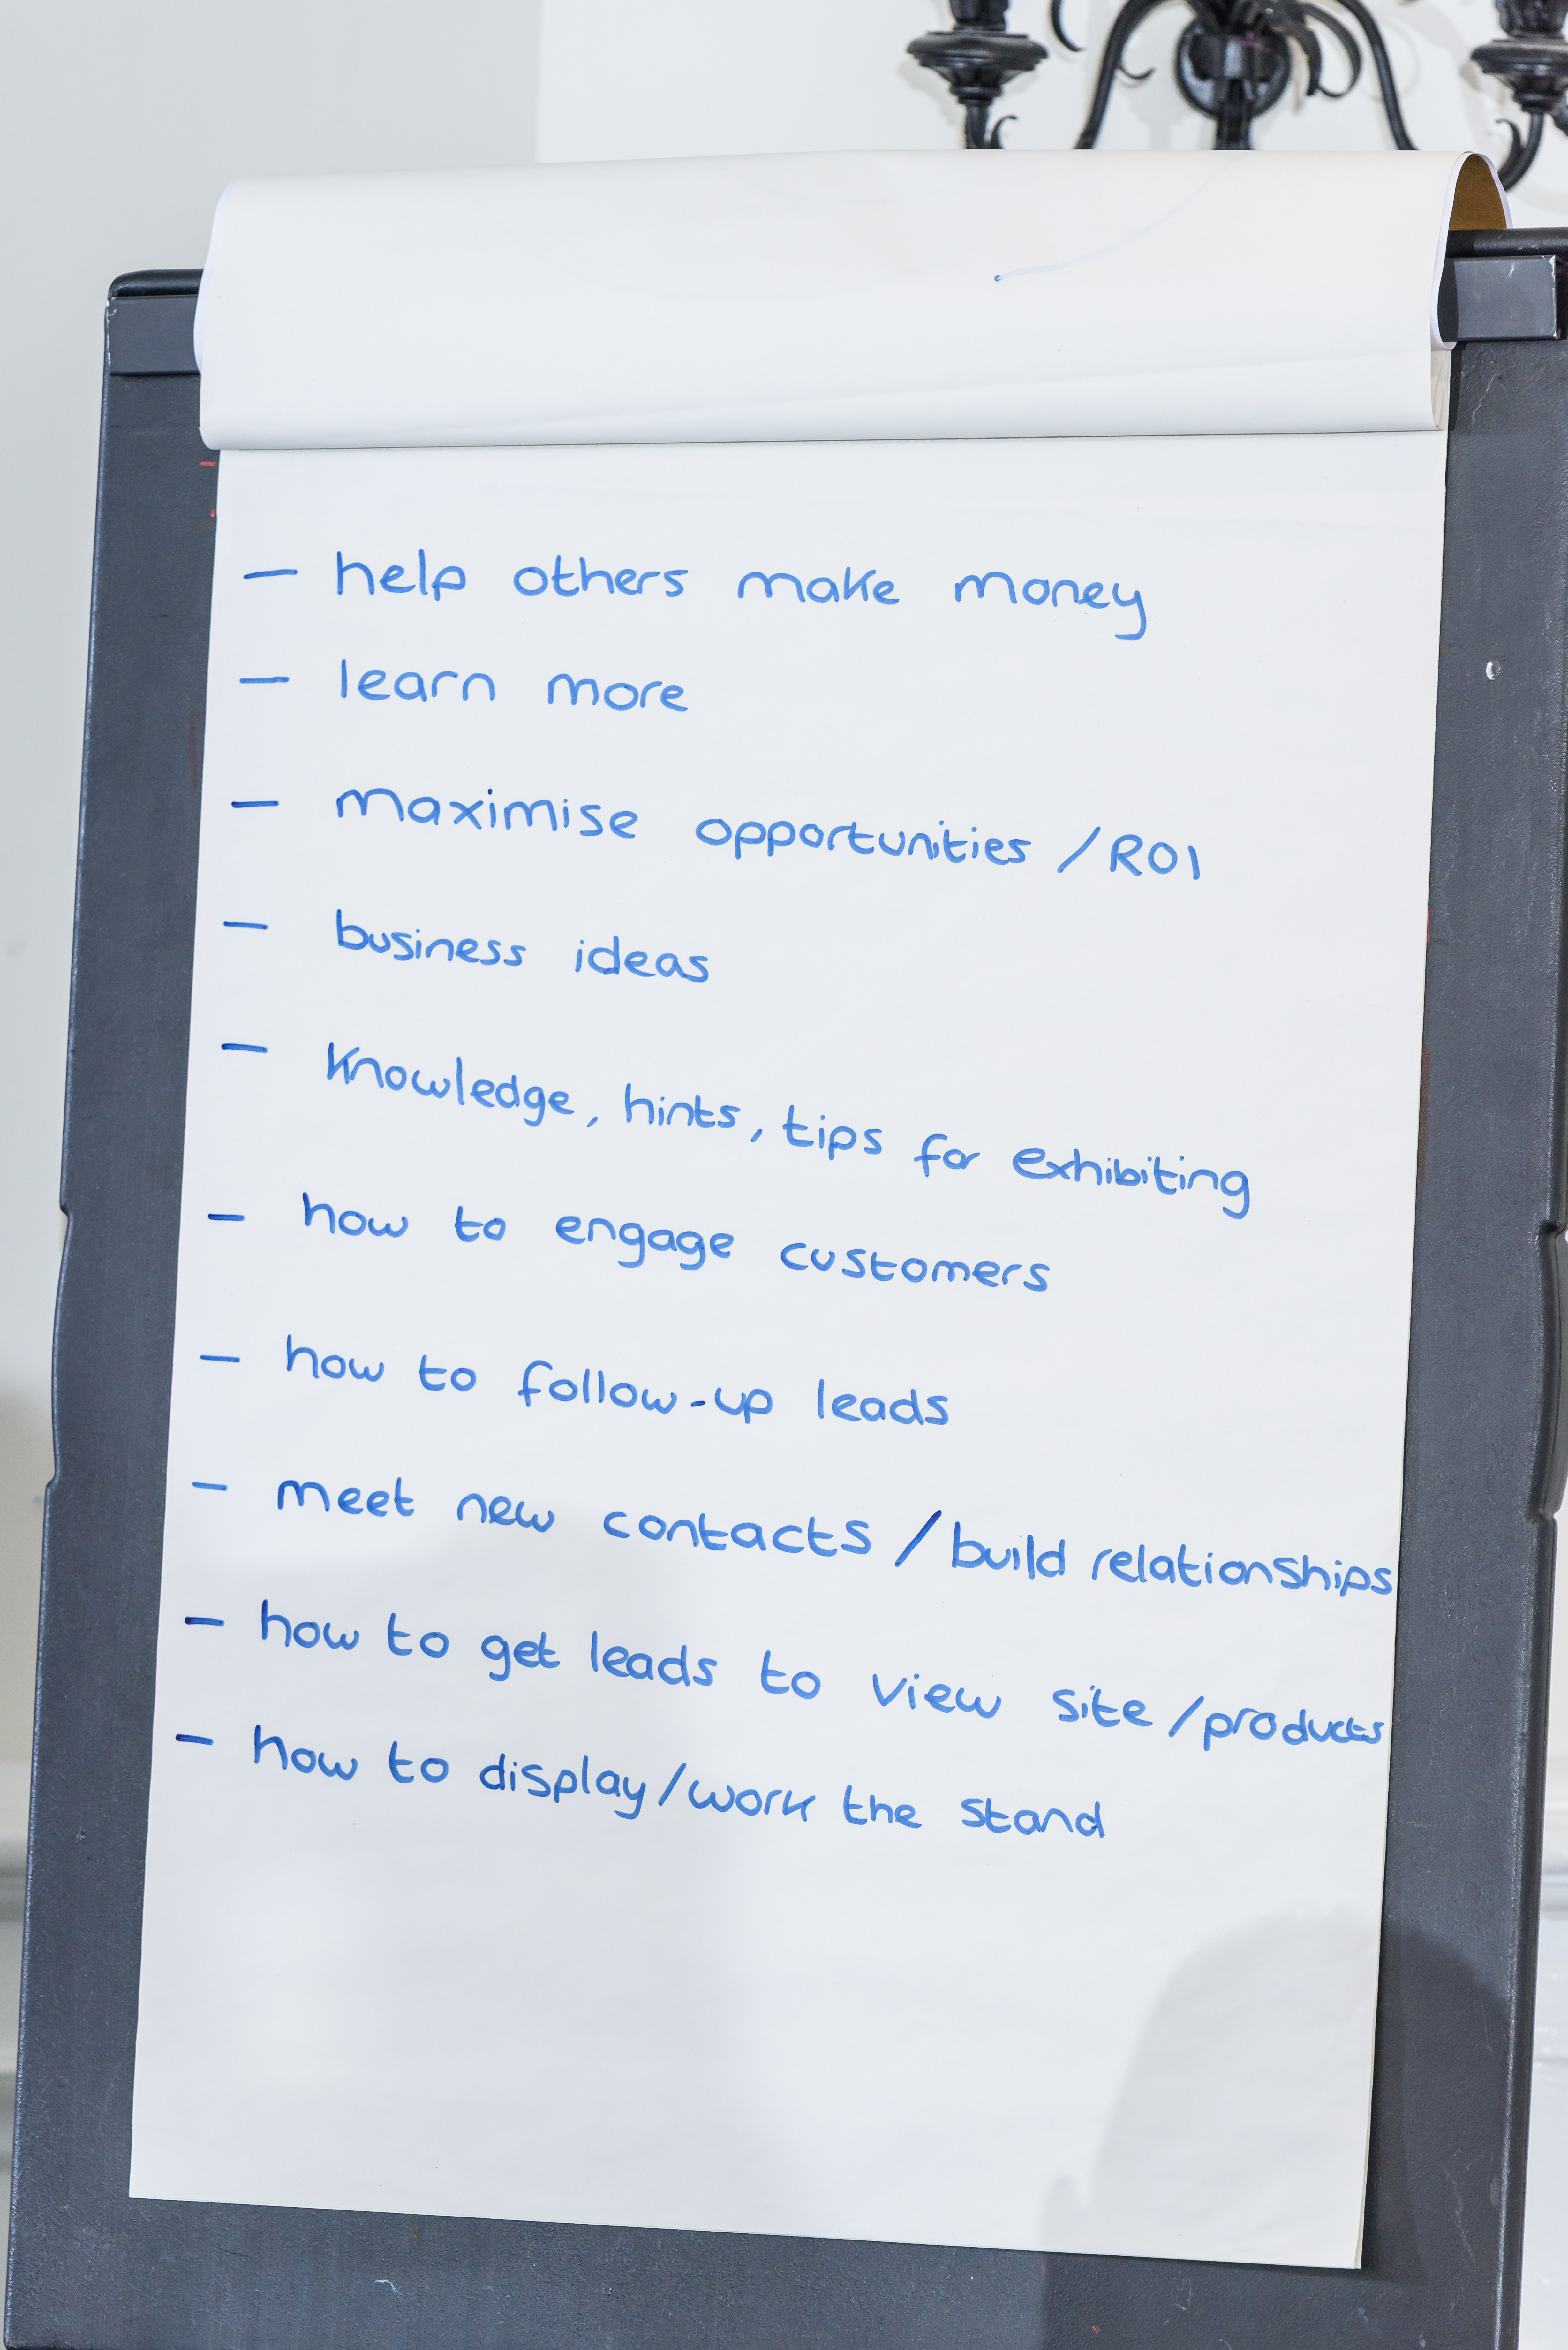 – help others make money
– learn more
– maximise opportunities / ROI
– business ideas
– Knowledge, hints, tips for exhibiting
– how to engage customers
– how to follow-up leads
– meet new contacts / build relationships
– how to get leads to view site / products
– how to display/work the stand